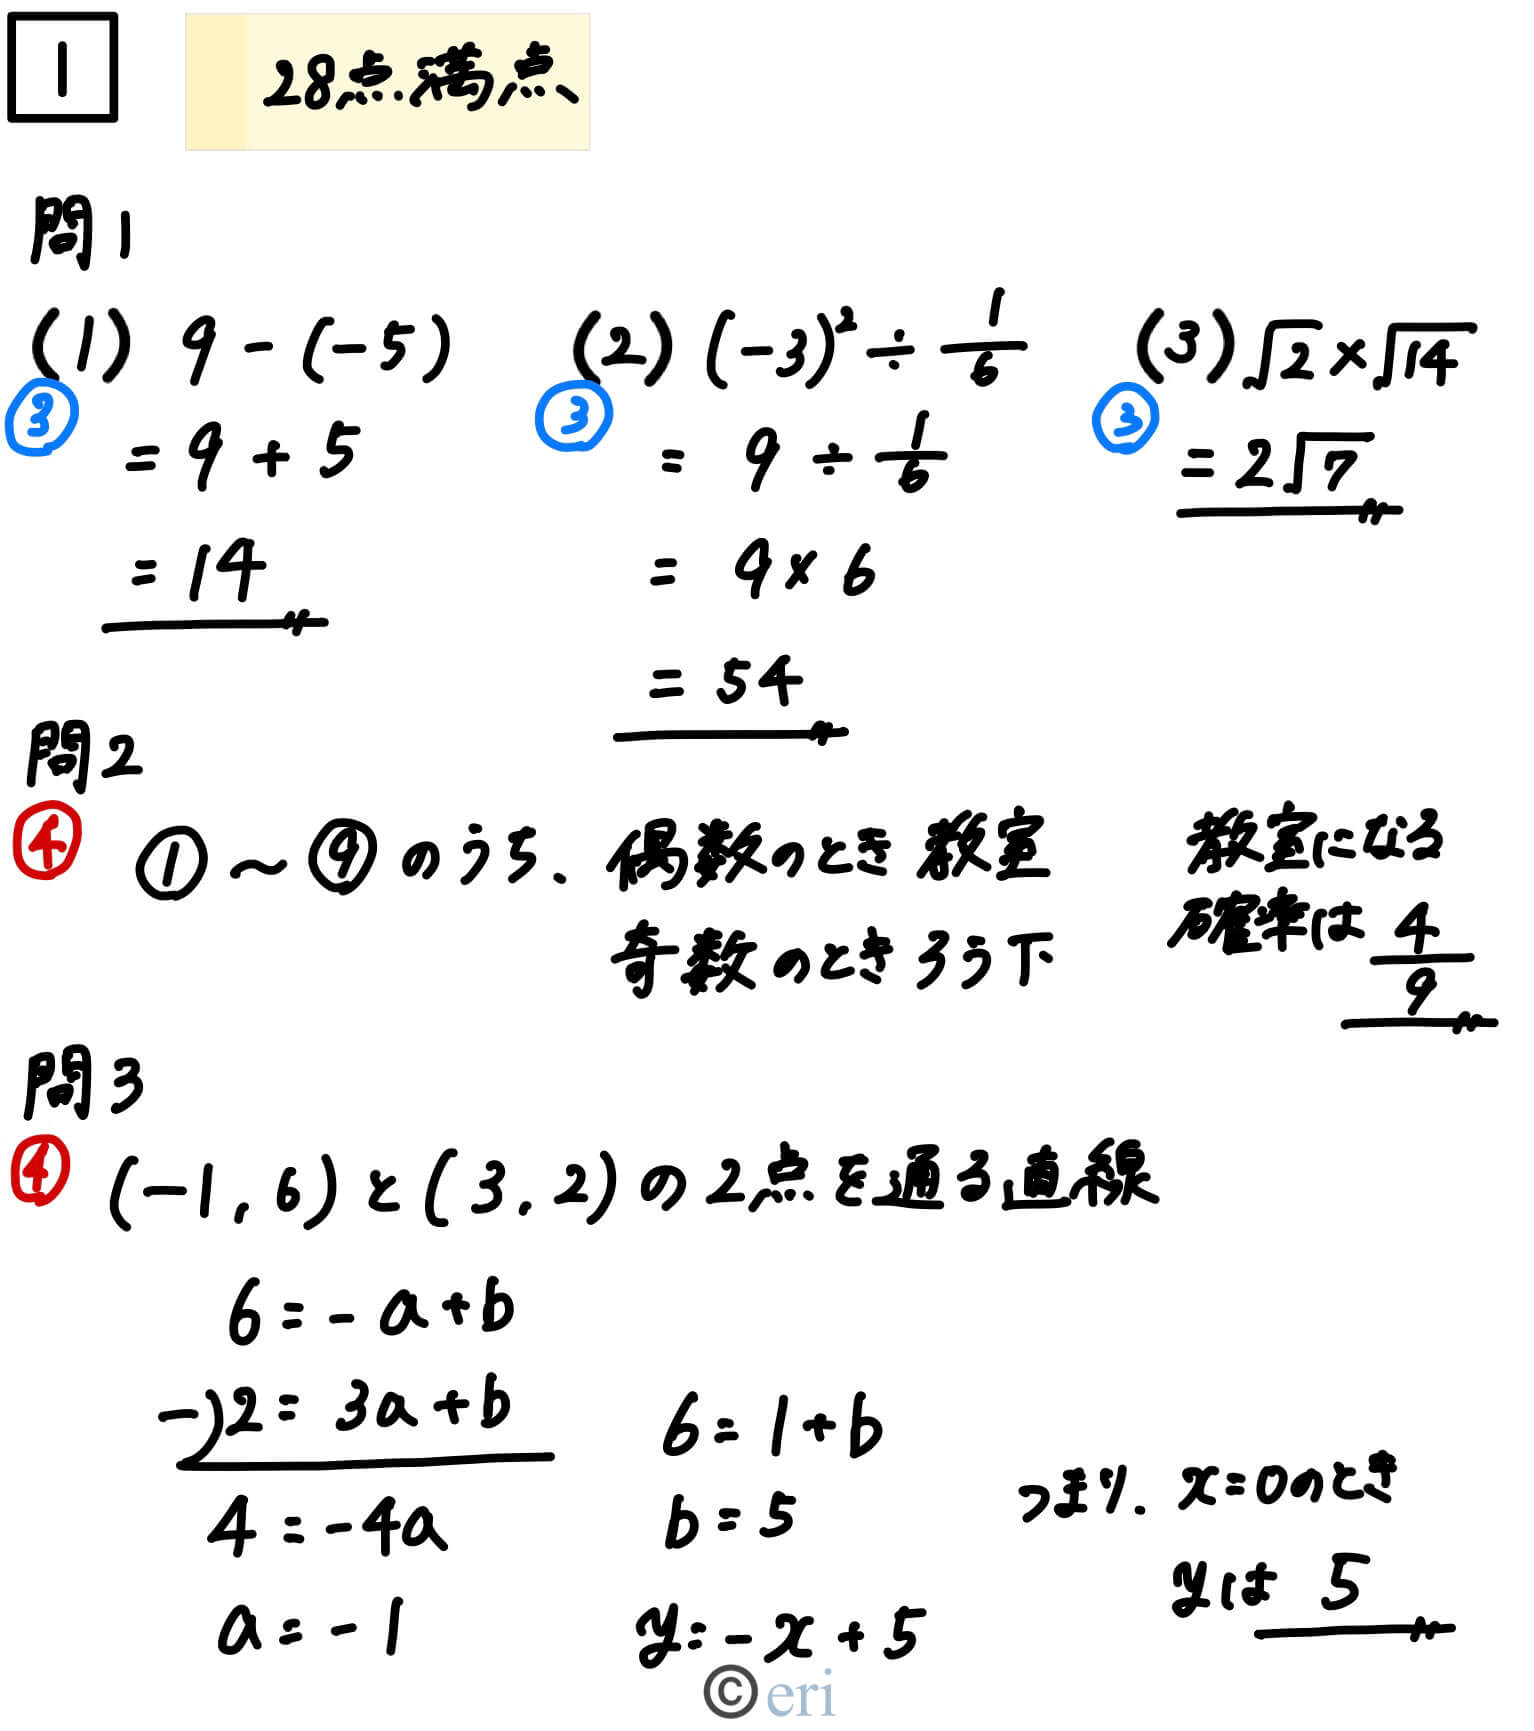 1
28点満点
問1
(1) 9 - (-5)
③
= 9 + 5
= 14
(2) (-3)² ÷ 1/6
③
= 9 ÷ 1/6
= 9 × 6
= 54
(3) √2 × √14
③
= 2√7
問2
④
① ～ ⑨ のうち、偶数のとき教室
奇数のときろう下
教室になる
確率は 4/9
問3
④
(-1, 6) と (3, 2) の2点を通る直線
6 = - a + b
-) 2 = 3a + b
4 = -4a
a = -1
6 = 1 + b
b = 5
y = -x + 5
つまり、x=0のとき
yは 5
© eri